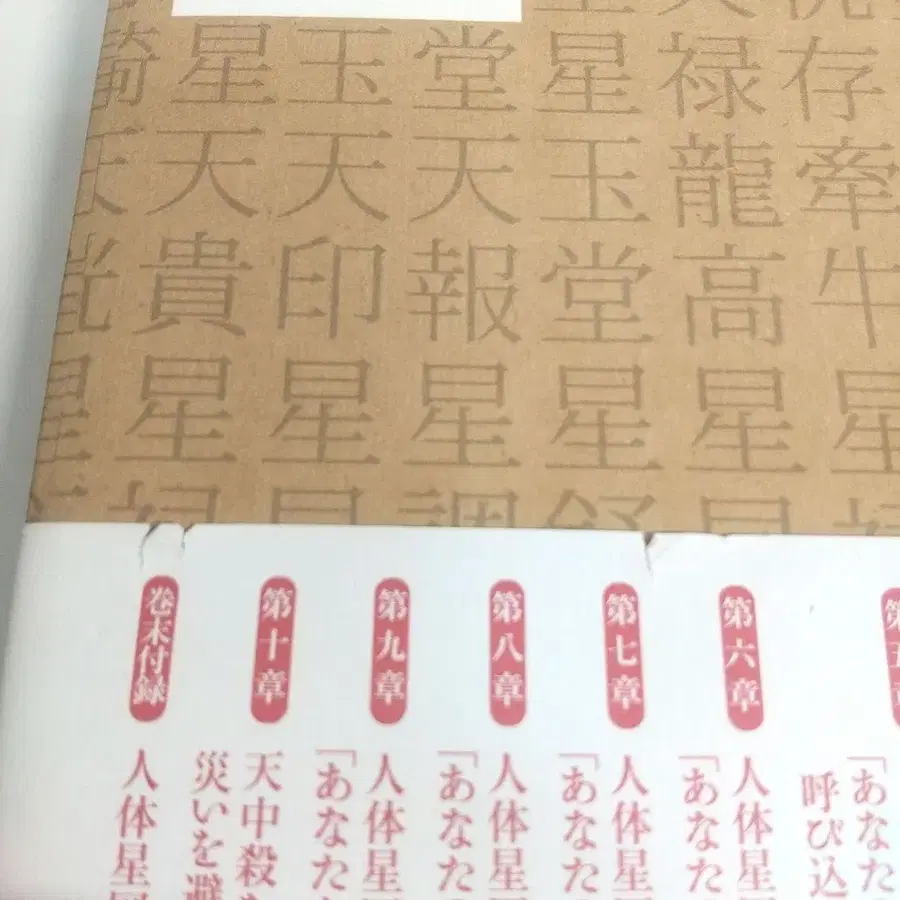 存牽牛星
禄龍高星
星玉堂星
堂天報星
玉天印星
星天貴星
「あなた
呼び込
第六章
人体星
「あなた
第七章
人体星
「あなた
第八章
人体星
「あなた
第九章
人体星
「あなた
第十章
天中殺
災いを避
巻末付録
人体星